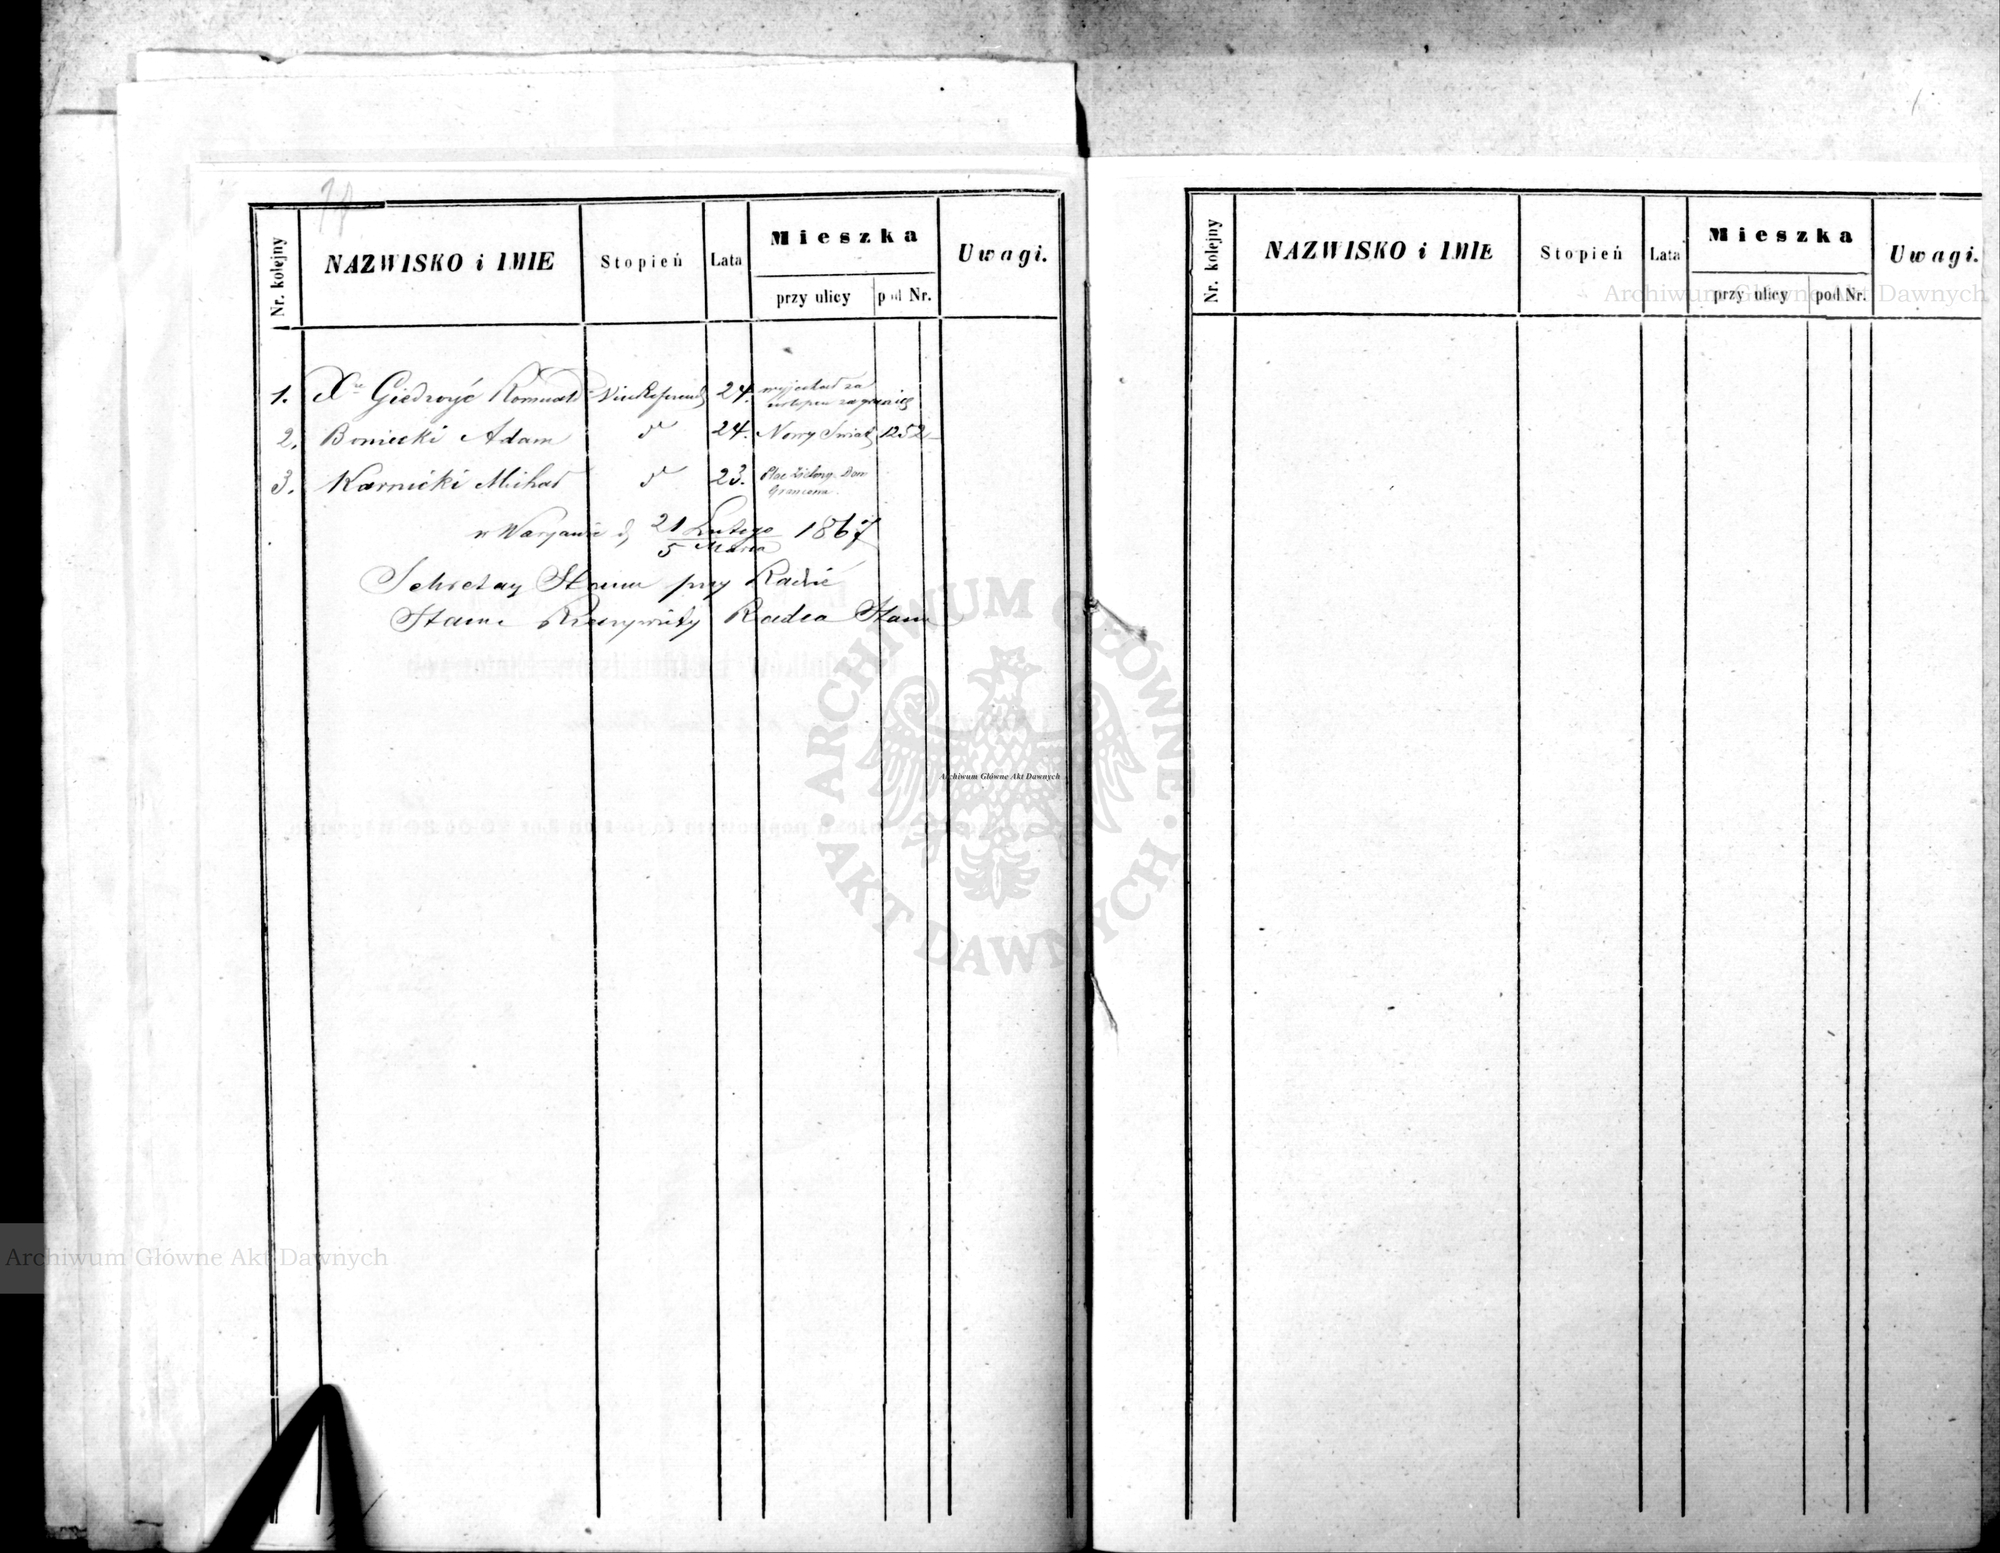 Nr. kolejny NAZWISKO i IMIE Stopień Lata Mieszka Uwagi.
przy ulicy pod Nr.
1. Xże Giedroyć Romuald ViceReferend 24. wyjechał za
urlopem za granicę
2. Boniecki Adam dº 24. Nowy Świat 1252
3. Karnicki Michał dº 23. Plac Zielony Dom
Granzona
w Warszawie d. 21 Lutego 1867
5 Marca
Sekretarz Stanu przy Radzie
Stanu Rzeczywisty Radca Stanu
Nr. kolejny NAZWISKO i IMIE Stopień Lata Mieszka Uwagi.
przy ulicy pod Nr.
Archiwum Główne Akt Dawnych
ARCHIWUM GŁÓWNE · AKT DAWNYCH ·
Archiwum Główne Akt Dawnych
Archiwum Główne Akt Dawnych